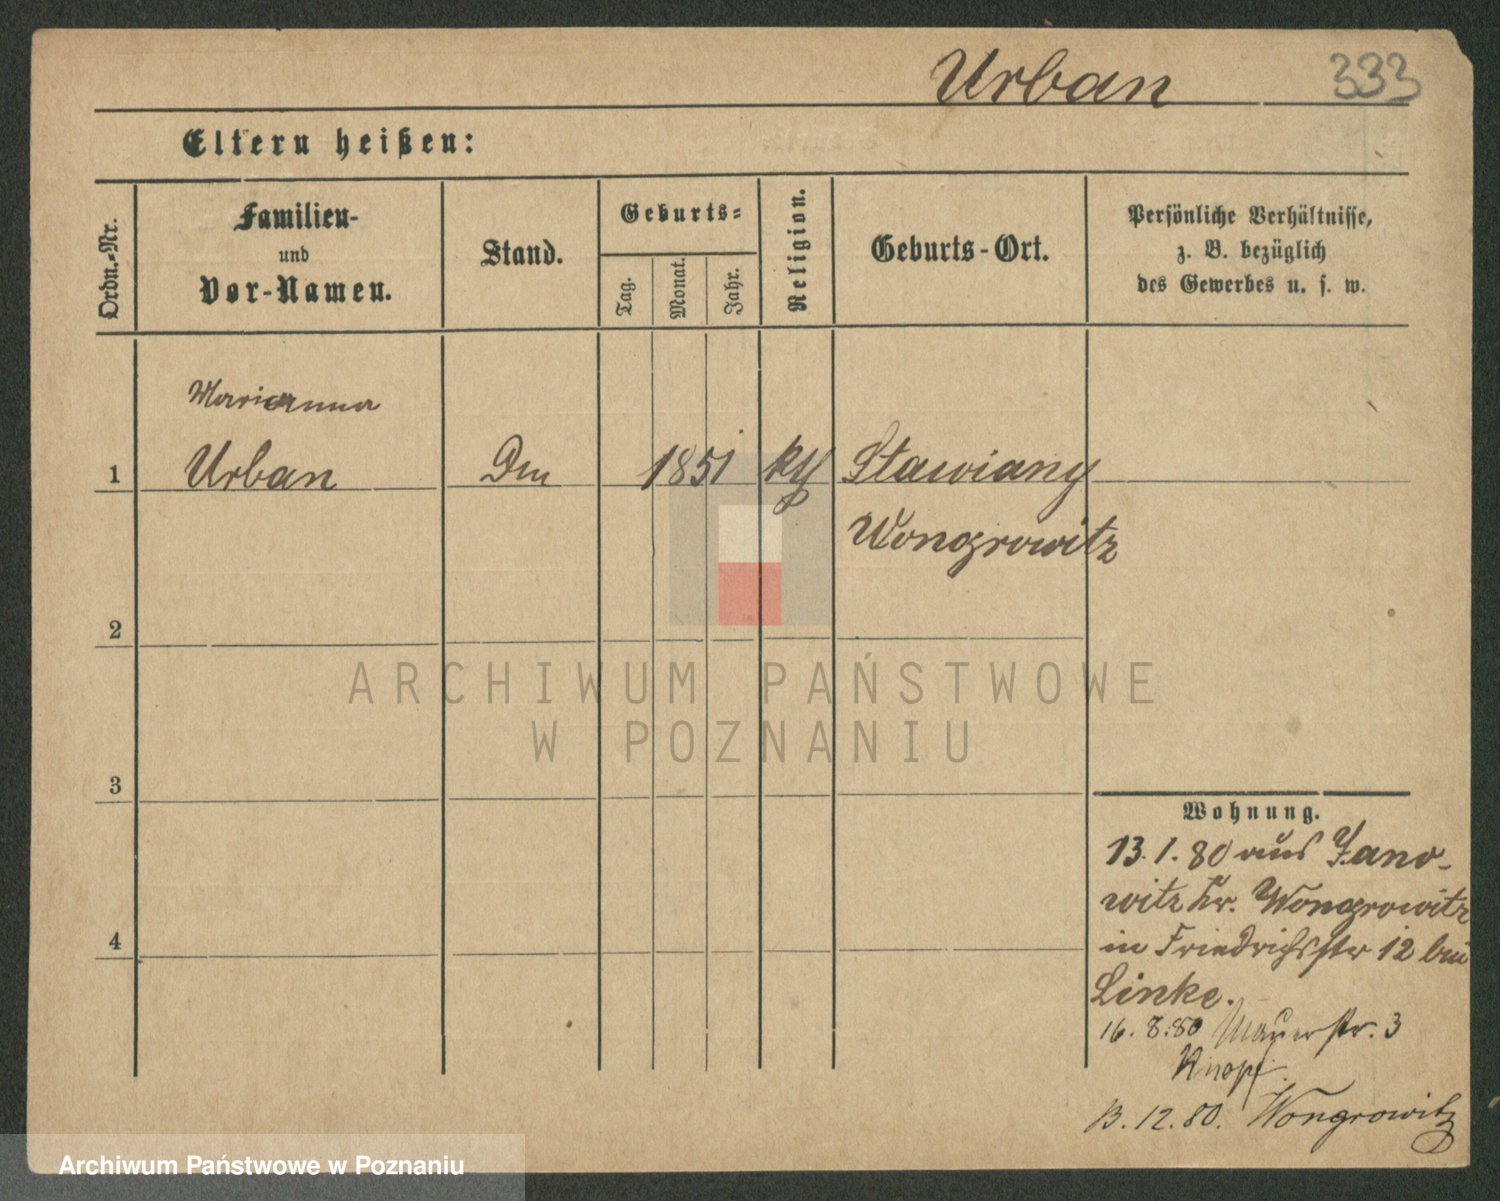 Urban 333
Eltern heißen:
Ordn.-Nr.
Familien-
und
Vor-Namen.
Stand.
Geburts-
Tag.
Monat.
Jahr.
Religion.
Geburts-Ort.
Persönliche Verhältnisse,
z. B. bezüglich
des Gewerbes u. s. w.
Marianna
1 Urban 1851 kth Stawiany
Wongrowitz
2
ARCHIWUM PAŃSTWOWE
W POZNANIU
3
Wohnung.
13.1.80 aus Jano-
witz Kr. Wongrowitz
in Friedrichstr 12 bei
4
Linke.
16.8.80 Mauerstr. 3
Knopf.
13.12.80. Wongrowitz
Archiwum Państwowe w Poznaniu